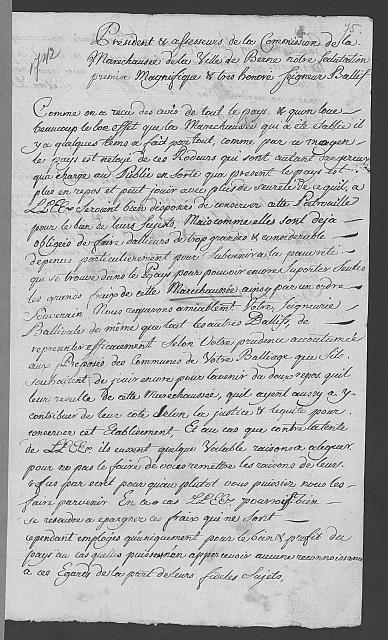 75.
1742
President & assesseurs de la Commission de la
Marechaussée de la Ville de Berne notre Salutation
premise Magnifique & tres honoré Seigneur Ballif
Comme on a receu des avis de tout le pays, & qu'on loue
beaucoup le bon effet que la Marechaussée qui a été établie il
y a quelques tems a fait partout, comme par ce moyen
le pais est netoié de ces Rodeurs qui sont autant dangereux
qu'a charge au Public en Sorte qu'a present le pays est
plus en repos et peut jouir avec plus de seureté de ce qu'il a,
LLEEx Seroient bien disposées de conserver cette Patrouille
pour le bien de leurs Sujets, Mais comme elles sont deja
obligées de faire d'ailleurs de trop grandes & considerable
depences particulierement pour Subvenir a la pauvreté
qui se trouve dans le Pays pour pouvoir encore Suporter Seules
les grands fraix de cette Marechaussée ainsy par un ordre
Souverain Nous requerons amiablement Votre Seigneurie
Ballivale de même que tout les autres Ballifs, de
representer efficacement Selon Votre prudence accoutumée
aux Preposés des Communes de Votre Balliage que S'ils
souhaitent de jouir encore pour l'avenir du doux repos qui
leur resulte de cette Marechaussée, qu'il ayent aussy a y
contribuer de leur coté Selon la justice & l'equité pour
conserver cet Etablissement, Et au cas que contre l'atente
de LLEEx ils eussent quelque Veitable raison a aleguer
pour ne pas le faire de vous remettre les raisons de leurs
refus par ecrit pour qu'au plutot vous puissiez nous les
faire parvenir En ce cas LLEEx pourroient bien
se resoudre a epargner ces fraix qui ne Sont
cependant employés qu'uniquement pour le bien & profit du
pays au cas qu'elles puissent non appercevoir aucune reconnoissance
a ces Egards de la part de leurs fideles Sujets,